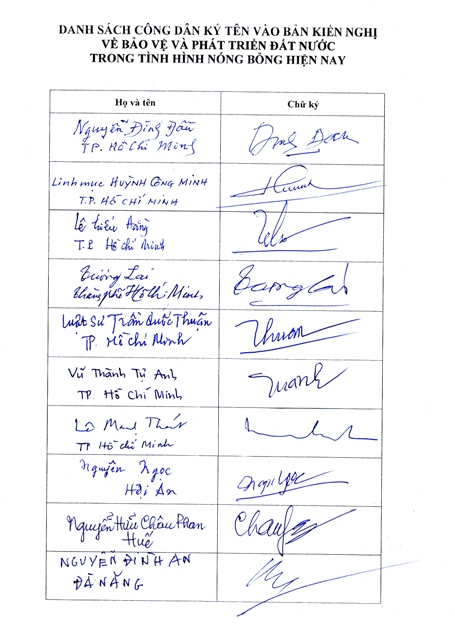 DANH SÁCH CÔNG DÂN KÝ TÊN VÀO BẢN KIẾN NGHỊ
VỀ BẢO VỆ VÀ PHÁT TRIỂN ĐẤT NƯỚC
TRONG TÌNH HÌNH NÓNG BỎNG HIỆN NAY
Họ và tên
Chữ ký
Nguyễn Đình Đầu
TP. Hồ Chí Minh
Linh mục HUỲNH CÔNG MINH
T.P. HỒ CHÍ MINH
Lê Hiếu Đằng
T.P Hồ Chí Minh
Tương Lai
Thành phố Hồ Chí Minh
Tương Lai
Luật Sư Trần Quốc Thuận
TP. Hồ Chí Minh
Thuận
Vũ Thành Tự Anh
TP. Hồ Chí Minh
TP Hồ Chí Minh
Nguyễn Ngọc
Hội An
Nguyễn Hữu Châu Phan
Huế
NGUYỄN ĐÌNH AN
ĐÀ NẴNG